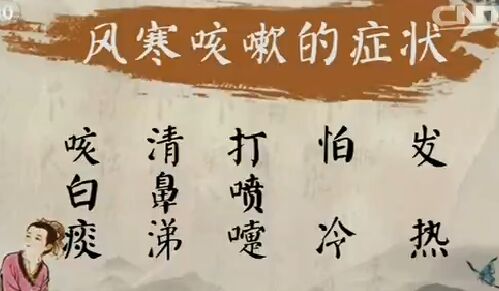 风寒咳嗽的症状
咳白痰
清鼻涕
打喷嚏
怕冷
发热